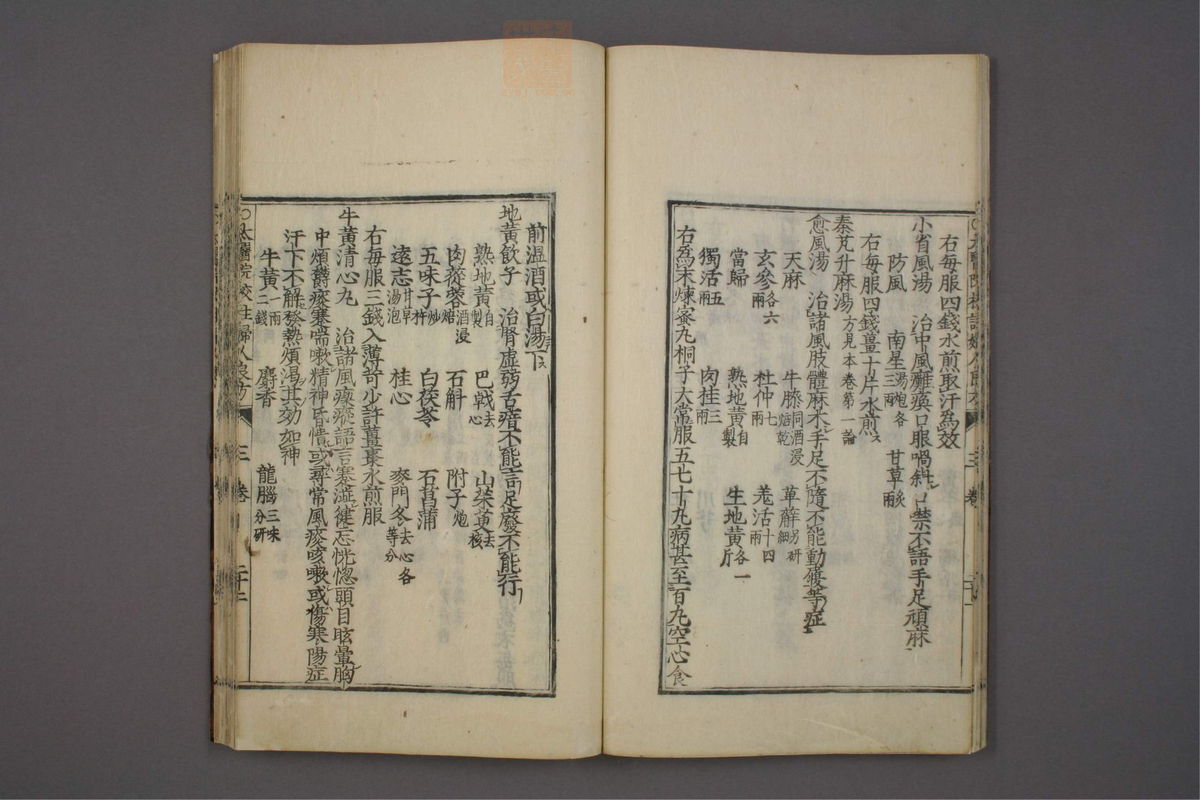 右每服四錢水煎取汗為效
小省風湯　治中風癱瘓口眼喎斜口禁不語手足頑麻
防風　南星湯炮各三兩　甘草炙兩
右每服四錢薑十片水煎
秦艽升麻湯方見本卷第一論
愈風湯　治諸風肢體麻木手足不隨不能動履等症
天麻　牛膝同酒浸焙乾　萆薢另研細
玄參各六兩　杜仲七兩　羌活十四兩
當歸　熟地黃自製　生地黃各一斤
獨活五兩　肉桂三兩
右為末煉蜜丸桐子大常服五七十丸病甚至百丸空心食
前溫酒或白湯下
地黃飲子　治腎虛弱舌瘖不能言足廢不能行
熟地黃自製　巴戟去心　山茱萸去核
肉蓯蓉酒浸焙　石斛　附子炮
五味子炒杵　白茯苓　石菖蒲
遠志甘草湯泡　桂心　麥門冬去心各等分
右每服三錢入薄荷少許薑棗水煎服
牛黃清心丸　治諸風瘓瘲語言蹇澁徤忘恍惚頭目眩暈胸
中煩欝痰塞喘嗽精神昏憒或尋常風痰咳嗽或傷寒陽症
汗下不解發熱煩渴其功如神
牛黃一兩二錢　麝香　龍腦三味三分研
○太醫院校註婦人良方　三　卷　二十二